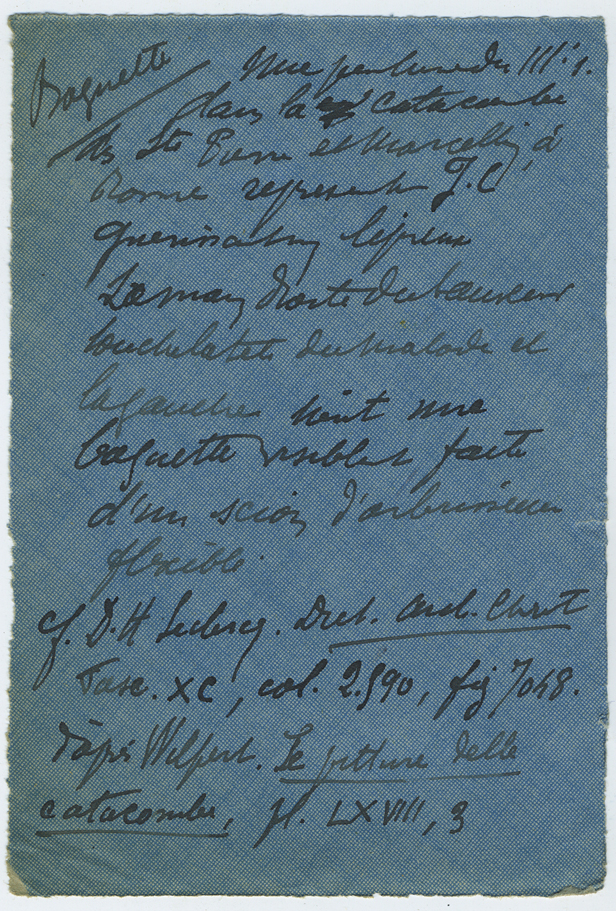 Baguette
Une peinture du IIIe s.
dans la catacombe
des Sts Pierre et Marcellin, à
Rome représente J.C
guérissant un lépreux
La main droite du Sauveur
touche la tête du malade et
la gauche tient une
baguette visible faite
d'un scion d'arbrisseau
flexible.
cf. D. H. Leclercq. Dict. arch. Chret
Fasc. XC, col. 2.590, fig 7048.
d'après Wilpert. Le pitture delle
catacombe, pl. LXVIII, 3